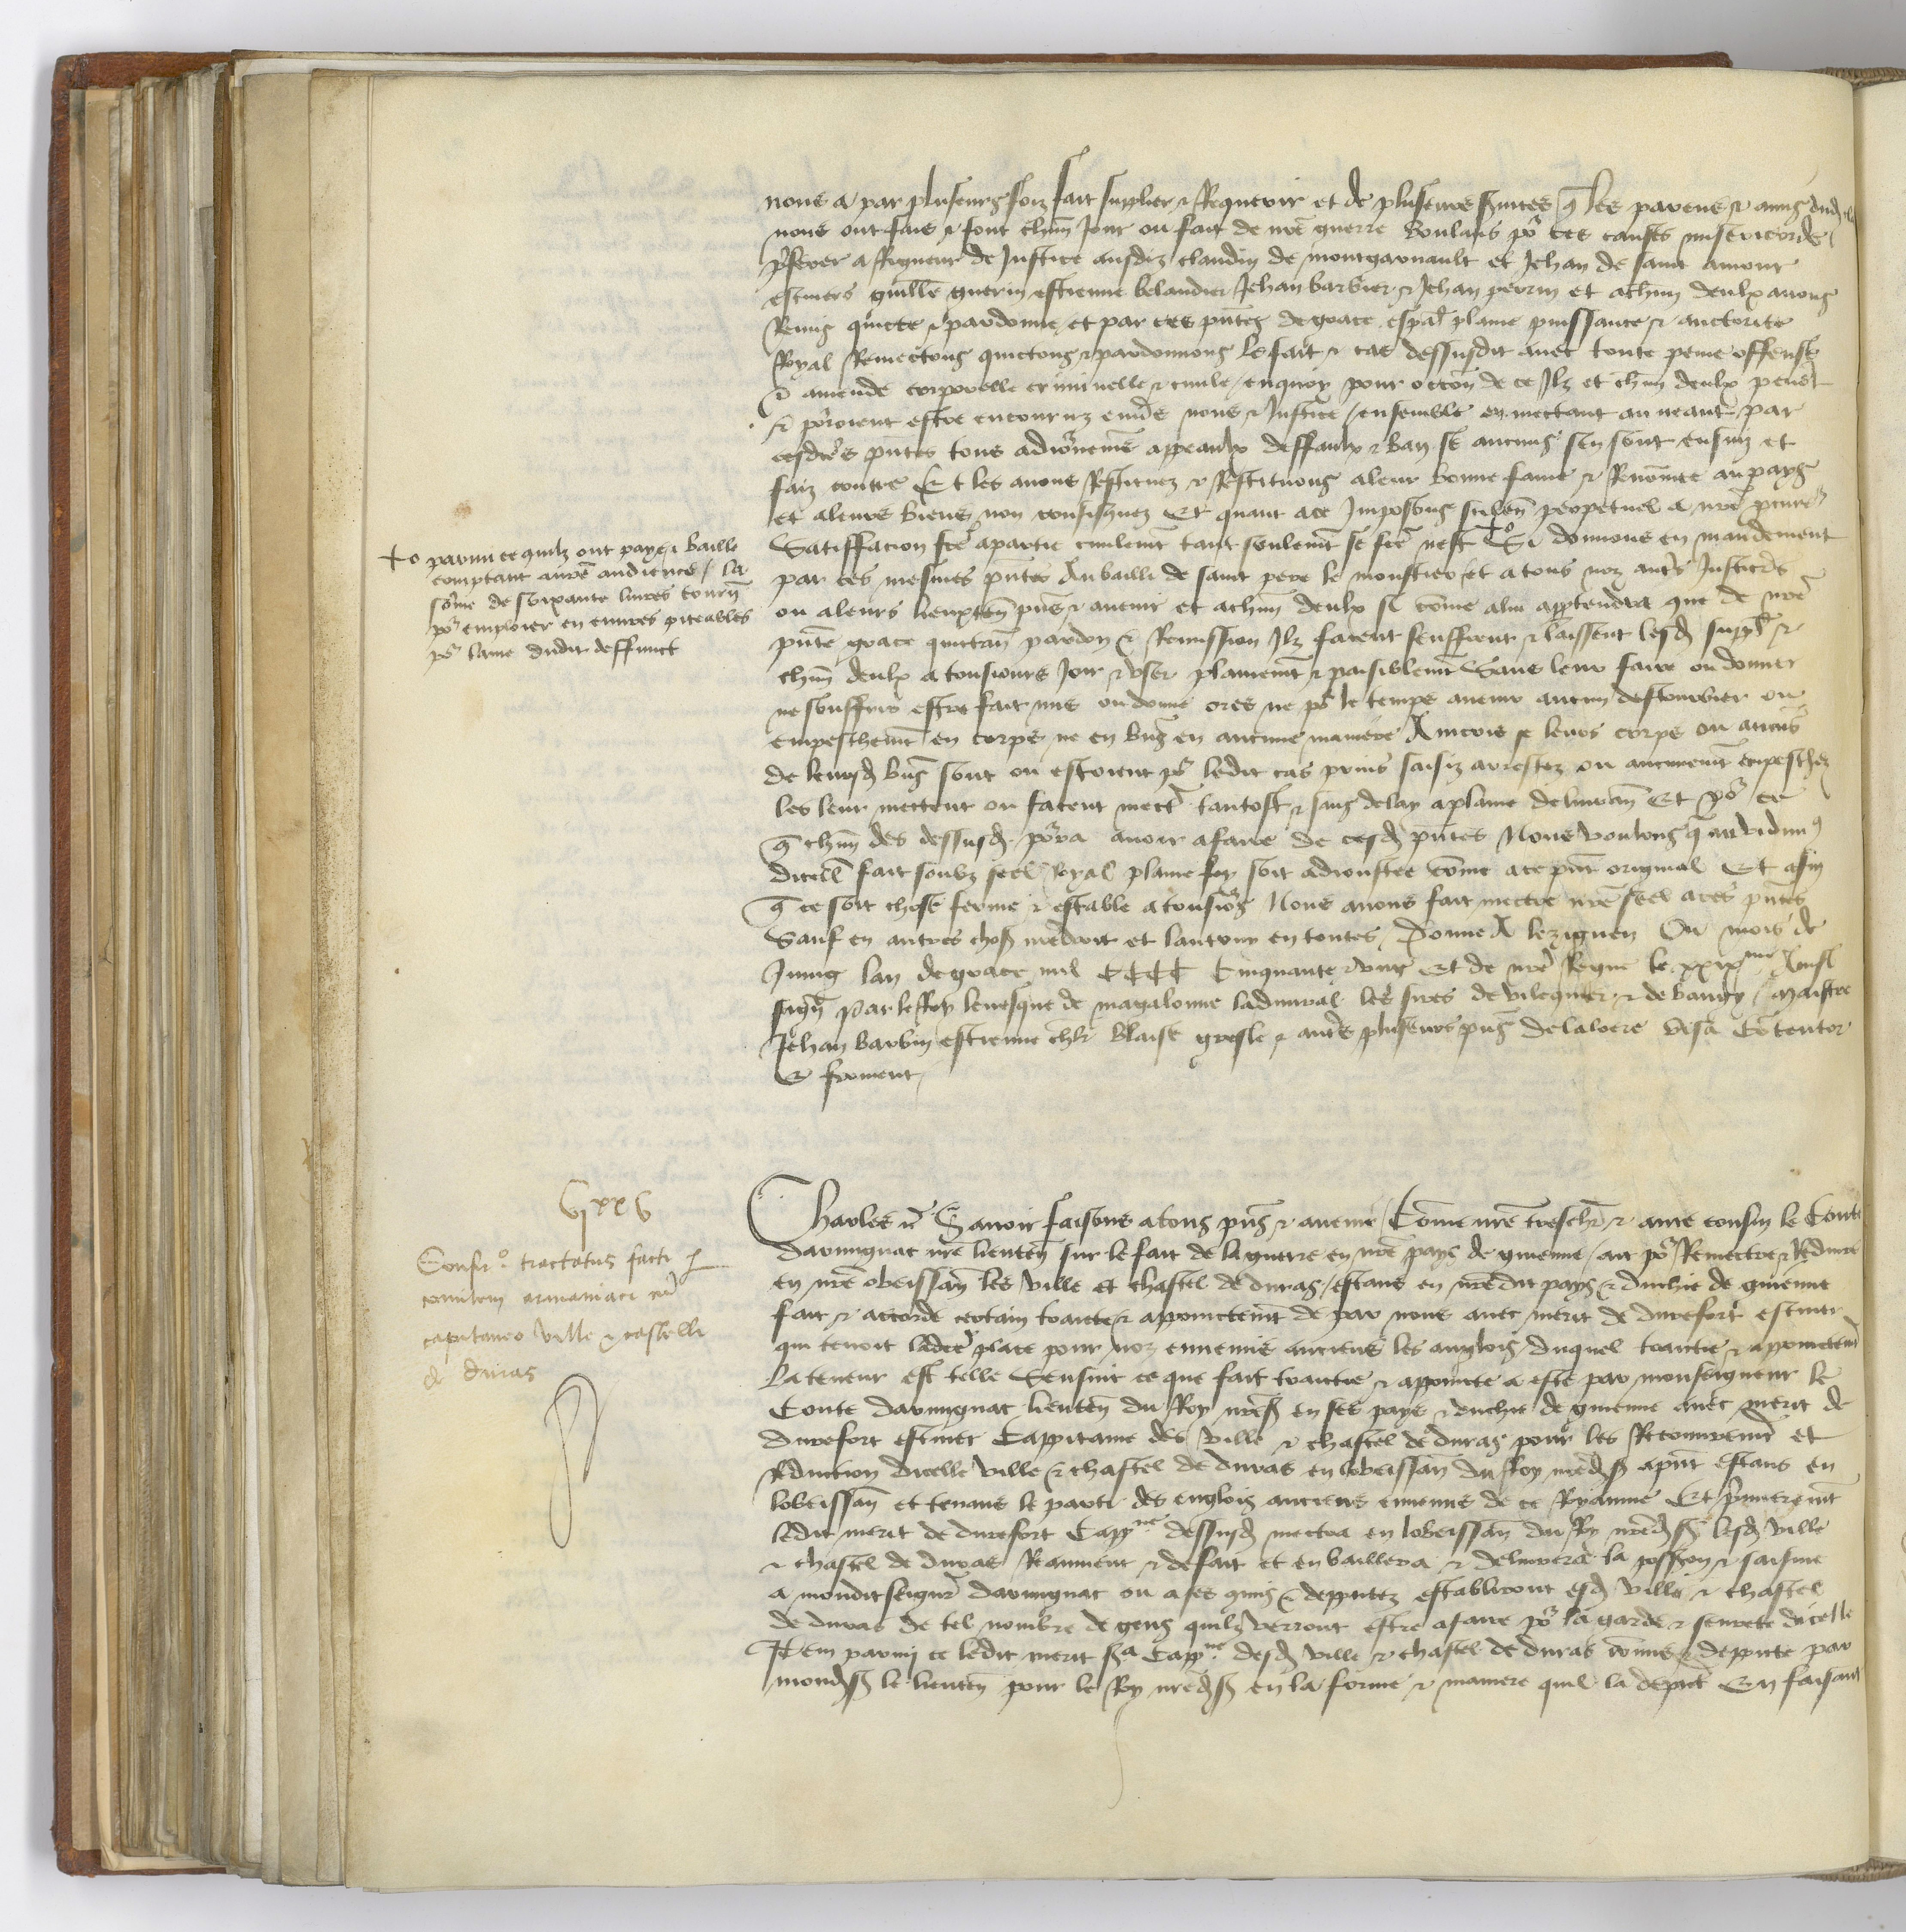 nous a par pluseurs foiz fait supplier & Requerir et de pluseurs s̃uices q̃ les parens & amis dud
nous ont fais & font chũn Jour ou fait de nr̃e guerre Voulans por ces causes misericorde
p̃ferer a Rigueur de Justice ausdiz claudin de montgarnault et Jehan de saint amour
escuiers guill̃e guerin estienne belandier Jehan barbier & Jehan perrin et achũn deulx auons
Remis quicte & pardonne et par ces pñtes de grace esp̃al plaine puissance & auctorite
Royal Remectons quictons & pardonnons le fait & cas dessusdit auec toute peine offense
& amende corporelle criminelle & ciuile enquoy pour occoñ de ce Ilz et chũn deulx peuent
& porroient estre encouruz enuers nous & Justice ensemble en mectant au neant par
cesdites pñtes tous adiornemens appeaulx deffaulx & ban se aucuns sen sont ensuiz et
faiz contre Et les auons Restituez & Restituons aleur bonne fame & Renõmee au pays
et aleurs biens non confisquez Et quant ace Imposons silence perpetuel a nr̃e procur̃
Satiffacion fcẽ apartie ciuilemt tant seulemt se fcẽ nest Si donnons en mandement
par ces mesmes pñtes Au bailli de saint pere le monstier et a tous noz autr̃s Justiciers
ou aleurs lieuxteñ pñs & auenir et achũn deulx si cõme alui app̃tendra que de nr̃e
pñte grace quictañ pardon & Remission Ilz facent seuffrent & laissent lesd suppl̃ &
chũn deulx a tousiours Joir & vser plainemt & paisiblemt Sans leur faire ou donner
ne souffrir estre fait mis ou donne ores ne por le temps auenir aucun destourbier ou
empeschemt en corps ne en biens en aucune maniere Aincois se leurs corps ou aucuns
de leursd biens sont ou estoient por ledit cas prins saisiz arrestez ou aucunemt empeschez
les leur mectent ou facent mectr̃ tantost & sans delay aplaine deliurañ Et por ce
q̃ chũn des dessusd porra auoir afaire de cesd pñtes Nous voulons q̃ au vidimus
dicell̃ fait soubz seel Royal plaine foy soit adioustee cõme ace pñt original Et afin
q̃ ce soit chose ferme & estable a tousiors Nous auons fait mectre nr̃e seel aces pñtes
Sauf en autres choses nr̃e droit et lautruy en toutes Donne A lezignen Ou mois de
Juing lan de grace mil CCCC Cinquante & vng Et de nr̃e Regne le xxixme Ainsi
signẽ Par le Roy leuesque de magalonne ladmiral les sires de vilequier & de bangy maistre
Jehan barbin estienne chlr̃ blaise gresle & autr̃s pluseurs pñs delaloere visa Cõtentor
E froment
+o parmi ce quilz ont paye & baille
comptant a nr̃e audiencier la
sõme de soixante liures tourñ
por emploier en euures piteables
por lame dudit deffunct
Vjxx V
Confir̃o tractatus facti p
comitem armaniaci cũ
capitaneo ville & castelli
de duras
Charles &c̃ Sauoir faisons atous pñs & auenir Cõme nr̃e treschr̃ & ame cousin le Conte
darmignac nr̃e lieuteñ sur le fait de la guerre en nr̃e pays de guienne ait por Remectre & Reduire
en nr̃e obeissañ les ville et chastel de duras estans en nr̃e dit pays & duchie de guienne
fait & accorde certain traictie & appoinctemt de par nous auec merit de durefort escuier
qui tenoit ladcẽ place pour noz ennemis anciens les anglois duquel traictie & appoinctemt
la teneur est telle Sensuit ce que fait traictie & appoincte a este par monseigneur le
Conte darmignac lieuteñ du Roy nr̃es en ses pays & duchie de guienne auec merit de
durefort escuier Cappitaine des ville & chastel de duras pour les Recouuremt et
Reduction dicelle ville & chastel de duras en lobeissañ du Roy nr̃eds apñt estans en
lobeissañ et tenans le parti des englois anciens ennemis de ce Royaume Et p̃mieremt
ledit merit de durefort Cappne dessusd mectra en lobeissañ du Roy nr̃eds lesd ville
& chastel de duras Reaument & de fait et en baillera & deliurera la possion & saisine
a mondit seigneur darmignac ou a ses cõmis & depputez establiront esd ville & chastel
de duras de tel nombre de gens quilz verront estre afaire por la garde & seurete dicelle
Item parmi ce ledit merit sera Cappne desd ville & chastel de duras cõmis & deppute par
monds le lieuteñ pour le Roy nr̃eds en la forme & maniere quil la depñt En faisant